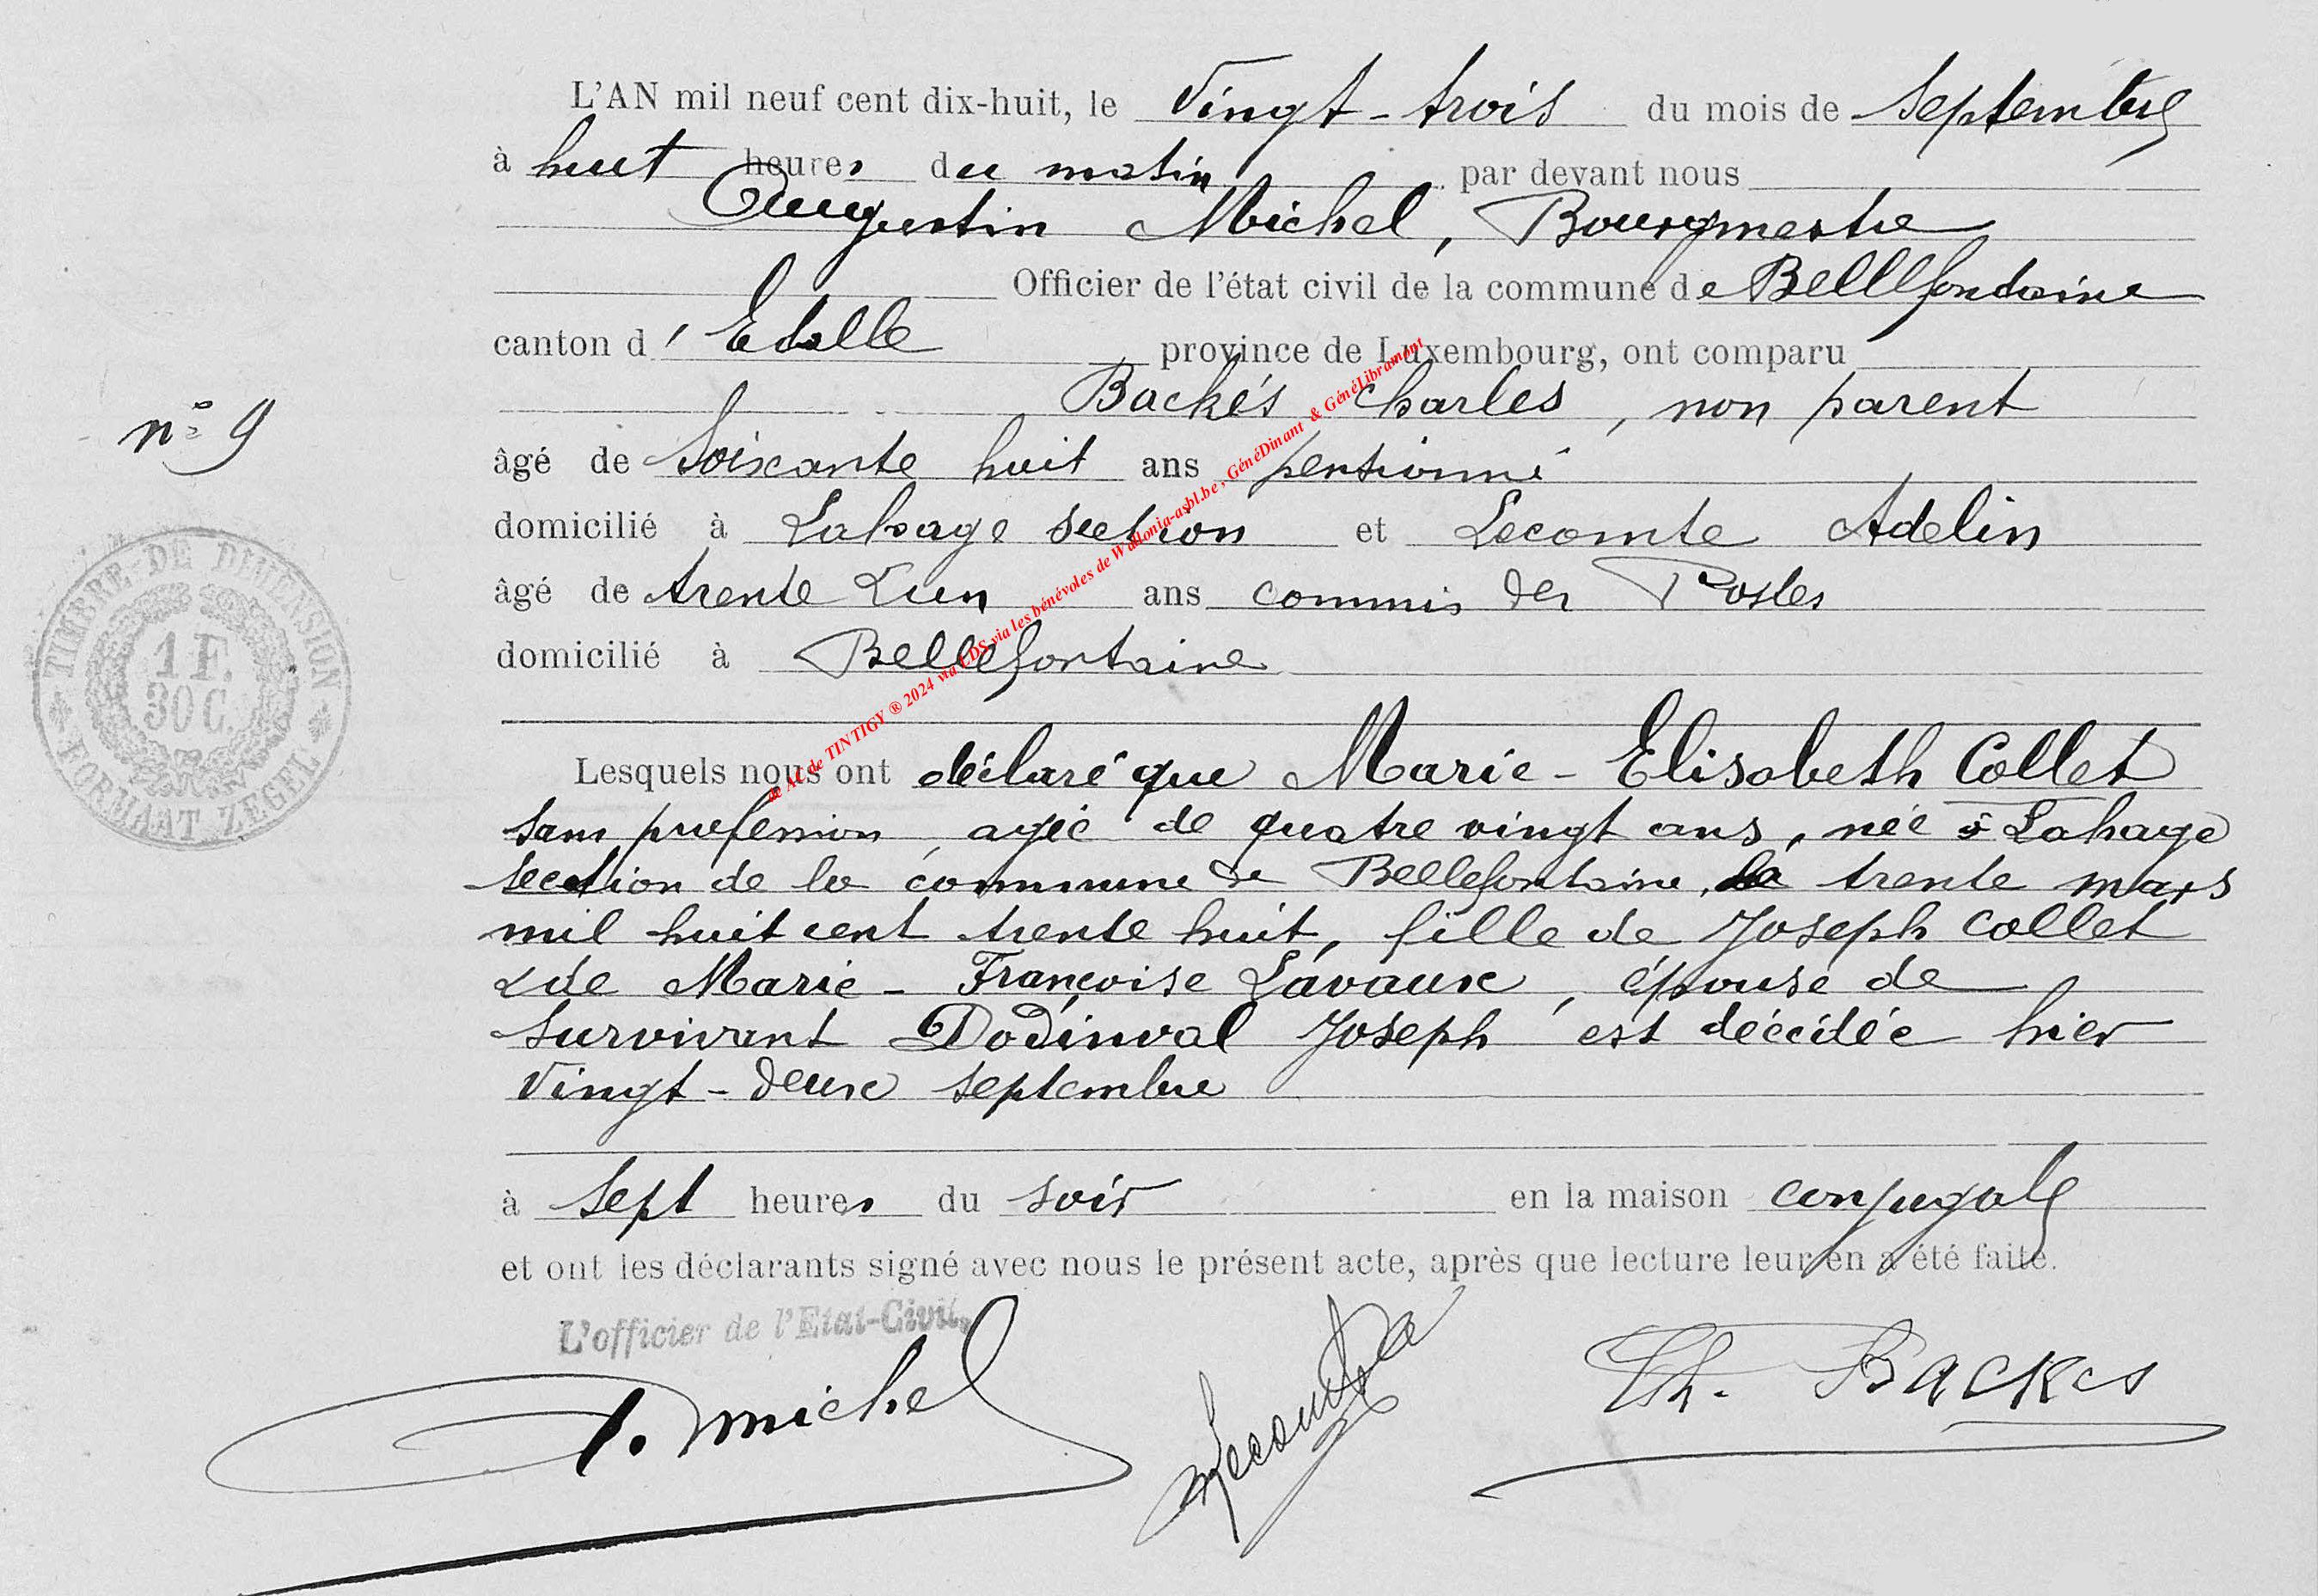 L'AN mil neuf cent dix-huit, le Vingt-trois du mois de Septembre
à huit heures du matin par devant nous
Augustin Michel, Bourgmestre
Officier de l'état civil de la commune de Bellefontaine
canton d' Etalle province de Luxembourg, ont comparu
Backés Charles, non parent
n° 9
âgé de Soixante huit ans pensionné
domicilié à Lahage section et Lecomte Adelin
âgé de trente & un ans commis des Postes
domicilié à Bellefontaine
TIMBRE DE DIMENSION
1 F.
30 C.
FORMAAT ZEGEL
de AC de TINTIGY ® 2024 via LDS via les bénévoles de Wallonia-asbl.be, GénéDinant & GénéLibramont
Lesquels nous ont déclaré que Marie-Elisabeth Collet
sans profession, agée de quatre vingt ans, née à Lahage
section de la commune de Bellefontaine, le trente mars
mil huit cent trente huit, fille de Joseph Collet
& de Marie-Françoise Lavaux, épouse de
survivant Dodinval Joseph est décédée hier
vingt-deux septembre
à sept heures du soir en la maison conjugale
et ont les déclarants signé avec nous le présent acte, après que lecture leur en a été faite.
L'officier de l'Etat-Civil,
A. Michel
Lecomte
Ch. Backes